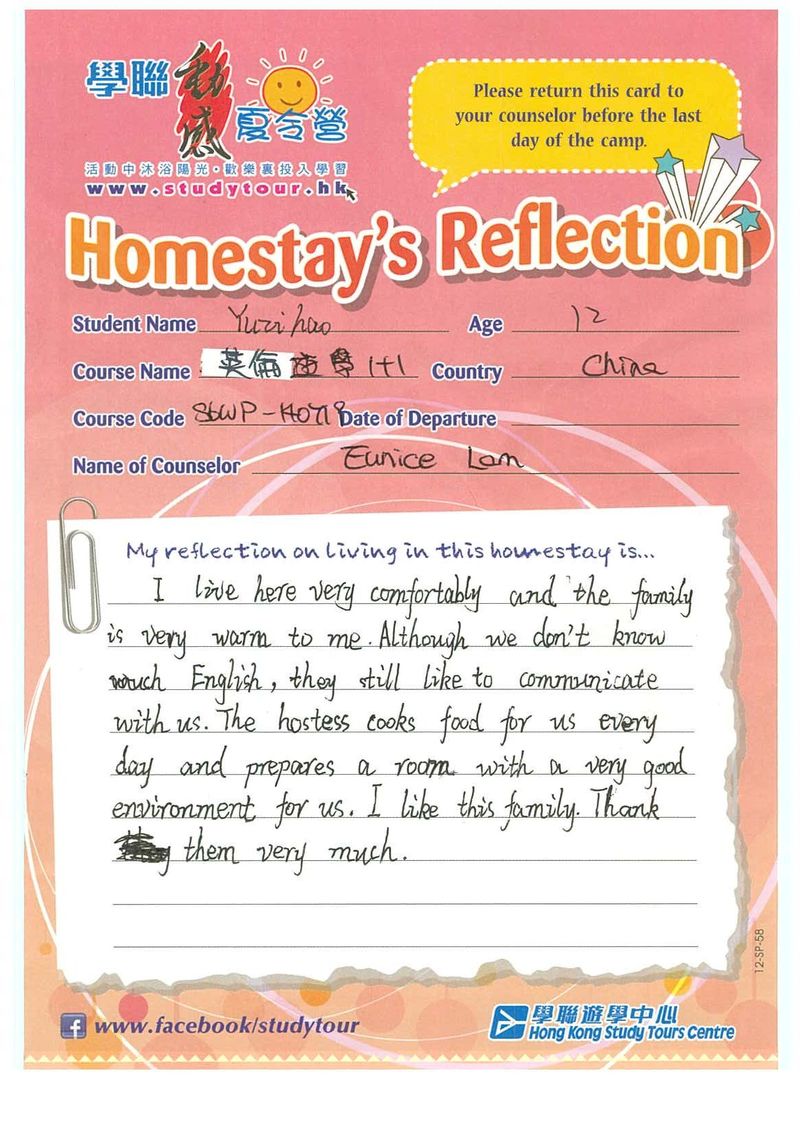 學聯 動感 夏令營
活動中沐浴陽光・歡樂裏投入學習
www.studytour.hk
Please return this card to
your counselor before the last
day of the camp.
Homestay's Reflection
Student Name Yuzihao Age 12
Course Name 英倫 學 1+1 Country China
Course Code Date of Departure
Name of Counselor Eunice Lam
My reflection on living in this homestay is...
I live here very comfortably and the family
is very warm to me. Although we don't know
much English, they still like to communicate
with us. The hostess cooks food for us every
day and prepares a room with a very good
environment for us. I like this family. Thank
them very much.
12-SP-58
www.facebook/studytour
學聯遊學中心
Hong Kong Study Tours Centre